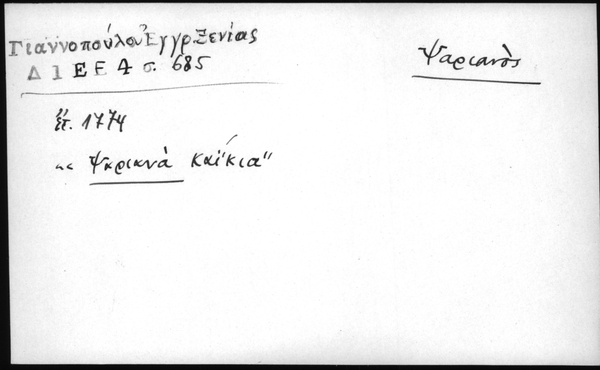 Γιαννοπούλου Ἔγγρ. Ξενίας
Δ 1 Ε Ε 4 σ. 685
Ψαριανὸς
ἔτ. 1774
"Ψαριανὰ καΐκια"